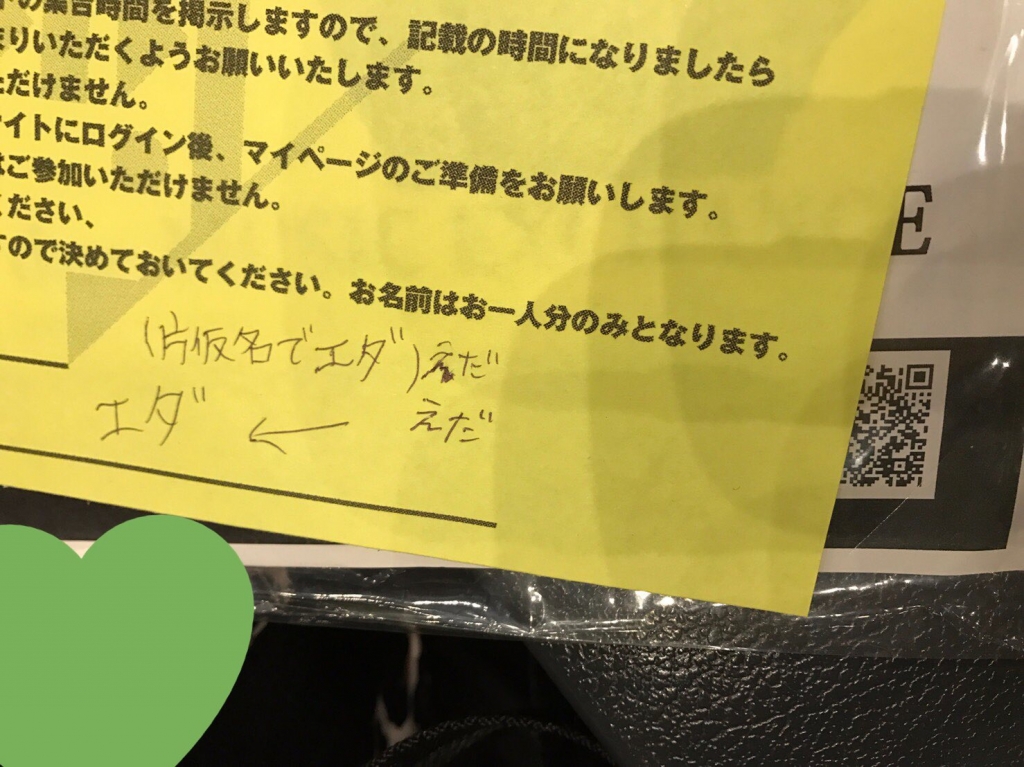 の集合時間を掲示しますので、記載の時間になりましたら
まりいただくようお願いいたします。
ただけません。
サイトにログイン後、マイページのご準備をお願いします。
はご参加いただけません。
ください、
すので決めておいてください。お名前はお一人分のみとなります。
(片仮名でエダ)えだ
エダ ← えだ
E